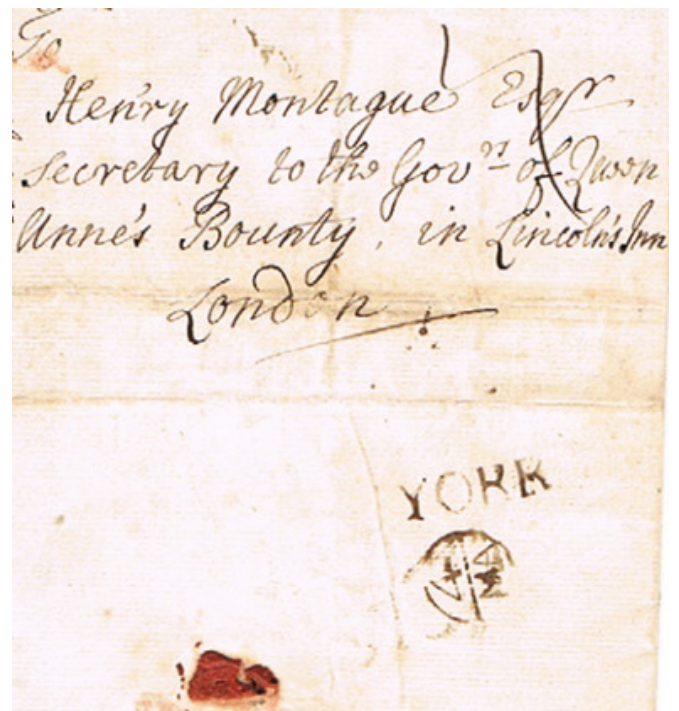 To
Henry Montague Esqr
Secretary to the Govrs of Queen
Anne's Bounty, in Lincoln's Inn
London
YORK